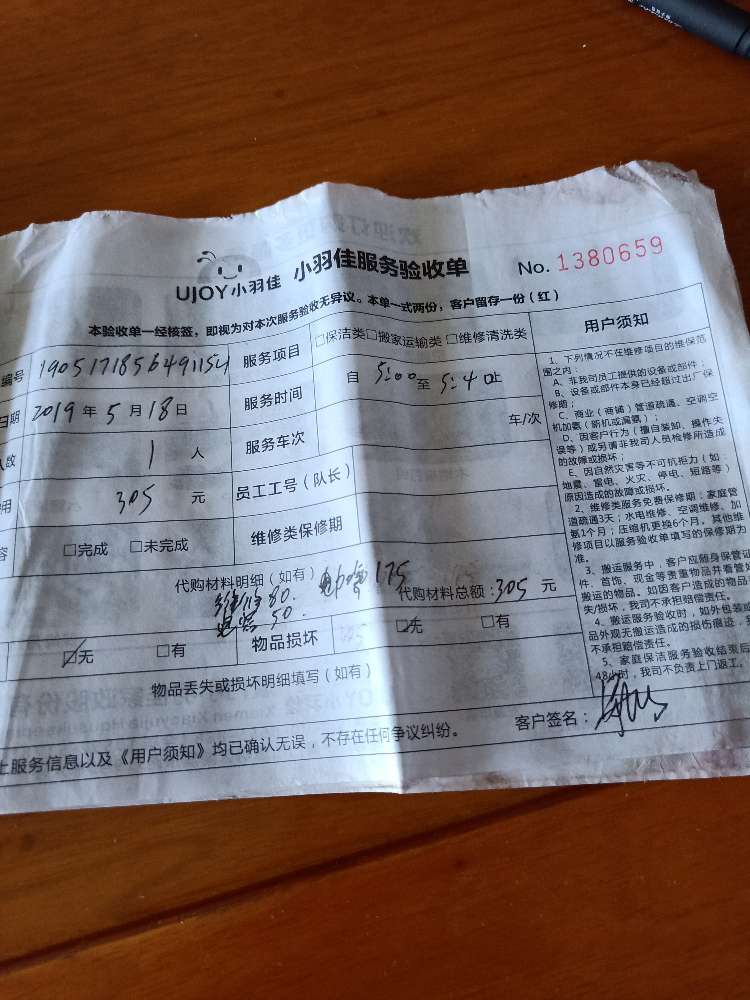 UJOY小羽佳 小羽佳服务验收单 No. 1380659
本验收单一经核签，即视为对本次服务验收无异议。本单一式两份，客户留存一份（红）
编号 190517185649115 服务项目 □保洁类□搬家运输类□维修清洗类
日期 2019年5月18日 服务时间 自 5:00 至 5:40止
人数 1 人 服务车次 车/次
用 305 元 员工工号（队长）
容 □完成 □未完成 维修类保修期
代购材料明细（如有） 175
80.
50. 代购材料总额：305 元
☑无 □有 物品损坏 ☑无 □有
物品丢失或损坏明细填写（如有）
上服务信息以及《用户须知》均已确认无误，不存在任何争议纠纷。 客户签名：
用户须知
1、下列情况不在维修项目的维保范
围之内：
A、非我司员工提供的设备或部件；
B、设备或部件本身已经超过出厂保
修期；
C、商业（商铺）管道疏通、空调空
机加氨（新机或漏氨）；
D、因客户行为（擅自装卸、操作失
误等）或另请非我司人员检修所造成
的故障或损坏；
E、因自然灾害等不可抗拒力（如
地震、雷电、火灾、停电、短路等）
原因造成的故障或损坏。
2、维修类服务免费保修期：家庭管
道疏通3天；水电维修、空调维修、加
氨1个月；压缩机更换6个月，其他维
修项目以服务验收单填写的保修期为
准。
3、搬运服务中，客户应随身保管证
件、首饰、现金等贵重物品并看管好
搬运的物品。如因客户造成的物品
失/损坏，我司不承担赔偿责任。
4、搬运服务验收时，如外包装或
品外观无搬运造成的损伤痕迹，我
不承担赔偿责任。
5、家庭保洁服务验收结束后
48小时，我司不负责上门返工。